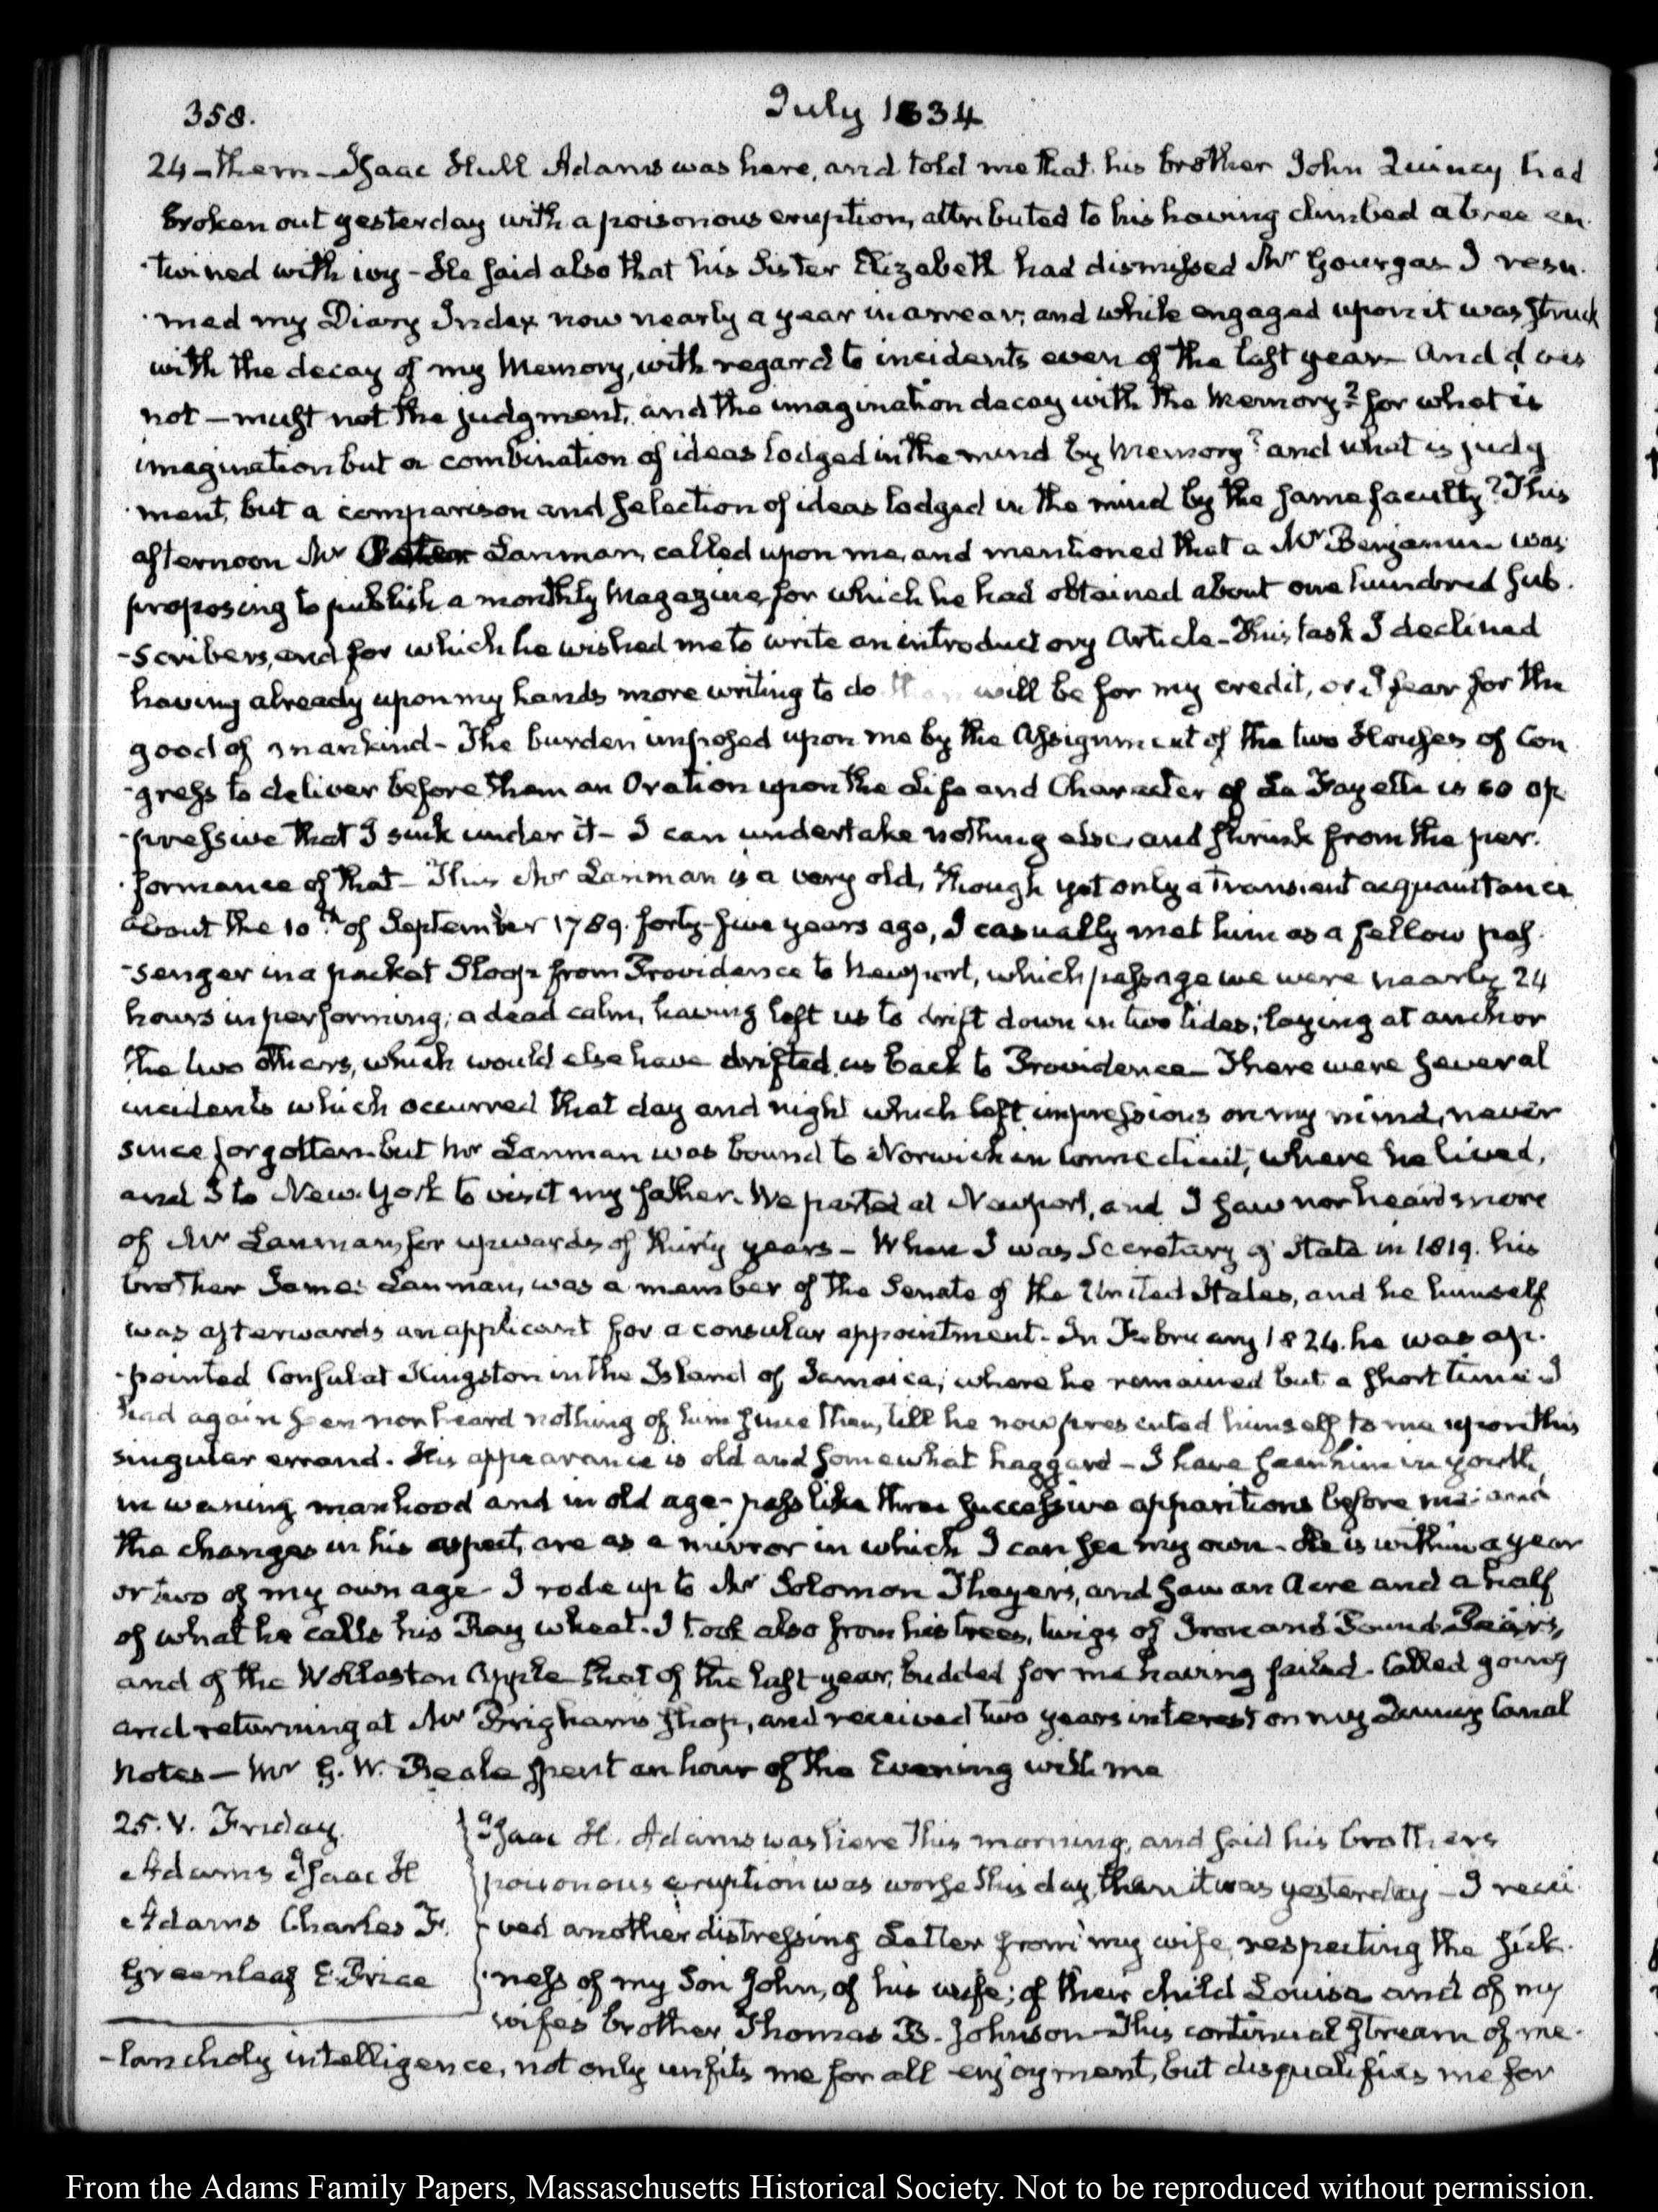 358.
July 1834
24 - them - Isaac Hull Adams was here, and told me that his brother John Quincy had
broken out yesterday with a poisonous eruption, attributed to his having climbed a tree en-
-twined with ivy - He said also that his Sister Elizabeth had dismissed Mr Gourgas I resu-
-med my Diary Index now nearly a year in arrear; and while engaged upon it was struck
with the decay of my Memory, with regard to incidents even of the last year - And does
not - must not the judgment, and the imagination decay with the Memory? for what is
imagination but a combination of ideas lodged in the mind by Memory? and what is judg
-ment, but a comparison and selection of ideas lodged in the mind by the same faculty? This
afternoon Mr Lanman, called upon me, and mentioned that a Mr Benjamin was
proposing to publish a monthly Magazine, for which he had obtained about one hundred sub-
-scribers, and for which he wished me to write an introductory Article - This task I declined
having already upon my hands more writing to do than will be for my credit, or I fear for the
good of mankind - The burden imposed upon me by the Assignment of the two Houses of Con
-gress to deliver before them an Oration upon the Life and Character of La Fayette is so op
-pressive that I sink under it - I can undertake nothing else, and shrink from the per-
-formance of that - This Mr Lanman is a very old, though yet only a transient acquaintance
about the 10th of September 1789. forty-five years ago, I casually met him as a fellow pas-
-senger in a packet Sloop from Providence to Newport, which passage we were nearly 24
hours in performing; a dead calm, having left us to drift down in two tides; laying at anchor
the two others, which would else have drifted us back to Providence - There were several
incidents which occurred that day and night which left impressions on my mind, never
since forgotten - but Mr Lanman was bound to Norwich in Connecticut, where he lived,
and I to New-York to visit my father. We parted at Newport, and I saw nor heard more
of Mr Lanman, for upwards of thirty years - When I was Secretary of State in 1819. his
brother James Lanman, was a member of the Senate of the United States, and he himself
was afterwards an applicant for a consular appointment - In February 1824. he was ap-
-pointed Consul at Kingston in the Island of Jamaica; where he remained but a short time I
had again seen nor heard nothing of him since then, till he now presented himself to me upon this
singular errand. His appearance is old and somewhat haggard - I have seen him in youth,
in waning manhood and in old age - pass like three successive apparitions before me; and
the changes in his aspect, are as a mirror in which I can see my own - He is within a year
or two of my own age - I rode up to Mr Solomon Thayer's, and saw an Acre and a half
of what he calls his Ray wheat. I took also from his trees, twigs of Iron and Pound Pears,
and of the Wollaston Apple - that of the last year, budded for me having failed - Called going
and returning at Mr Brigham's shop, and received two years interest on my Quincy Canal
Notes - Mr G. W. Beale spent an hour of the Evening with me
25. V. Friday.
Adams Isaac H
Adams Charles F.
Greenleaf E. Price
Isaac H. Adams was here this morning, and said his brothers
poisonous eruption was worse this day, than it was yesterday - I recei-
-ved another distressing Letter from my wife, respecting the sick-
-ness of my Son John, of his wife; of their child Louisa and of my
wife's brother Thomas B. Johnson - This continual stream of me-
-lancholy intelligence, not only unfits me for all enjoyment, but disqualifies me for
From the Adams Family Papers, Massachusetts Historical Society. Not to be reproduced without permission.